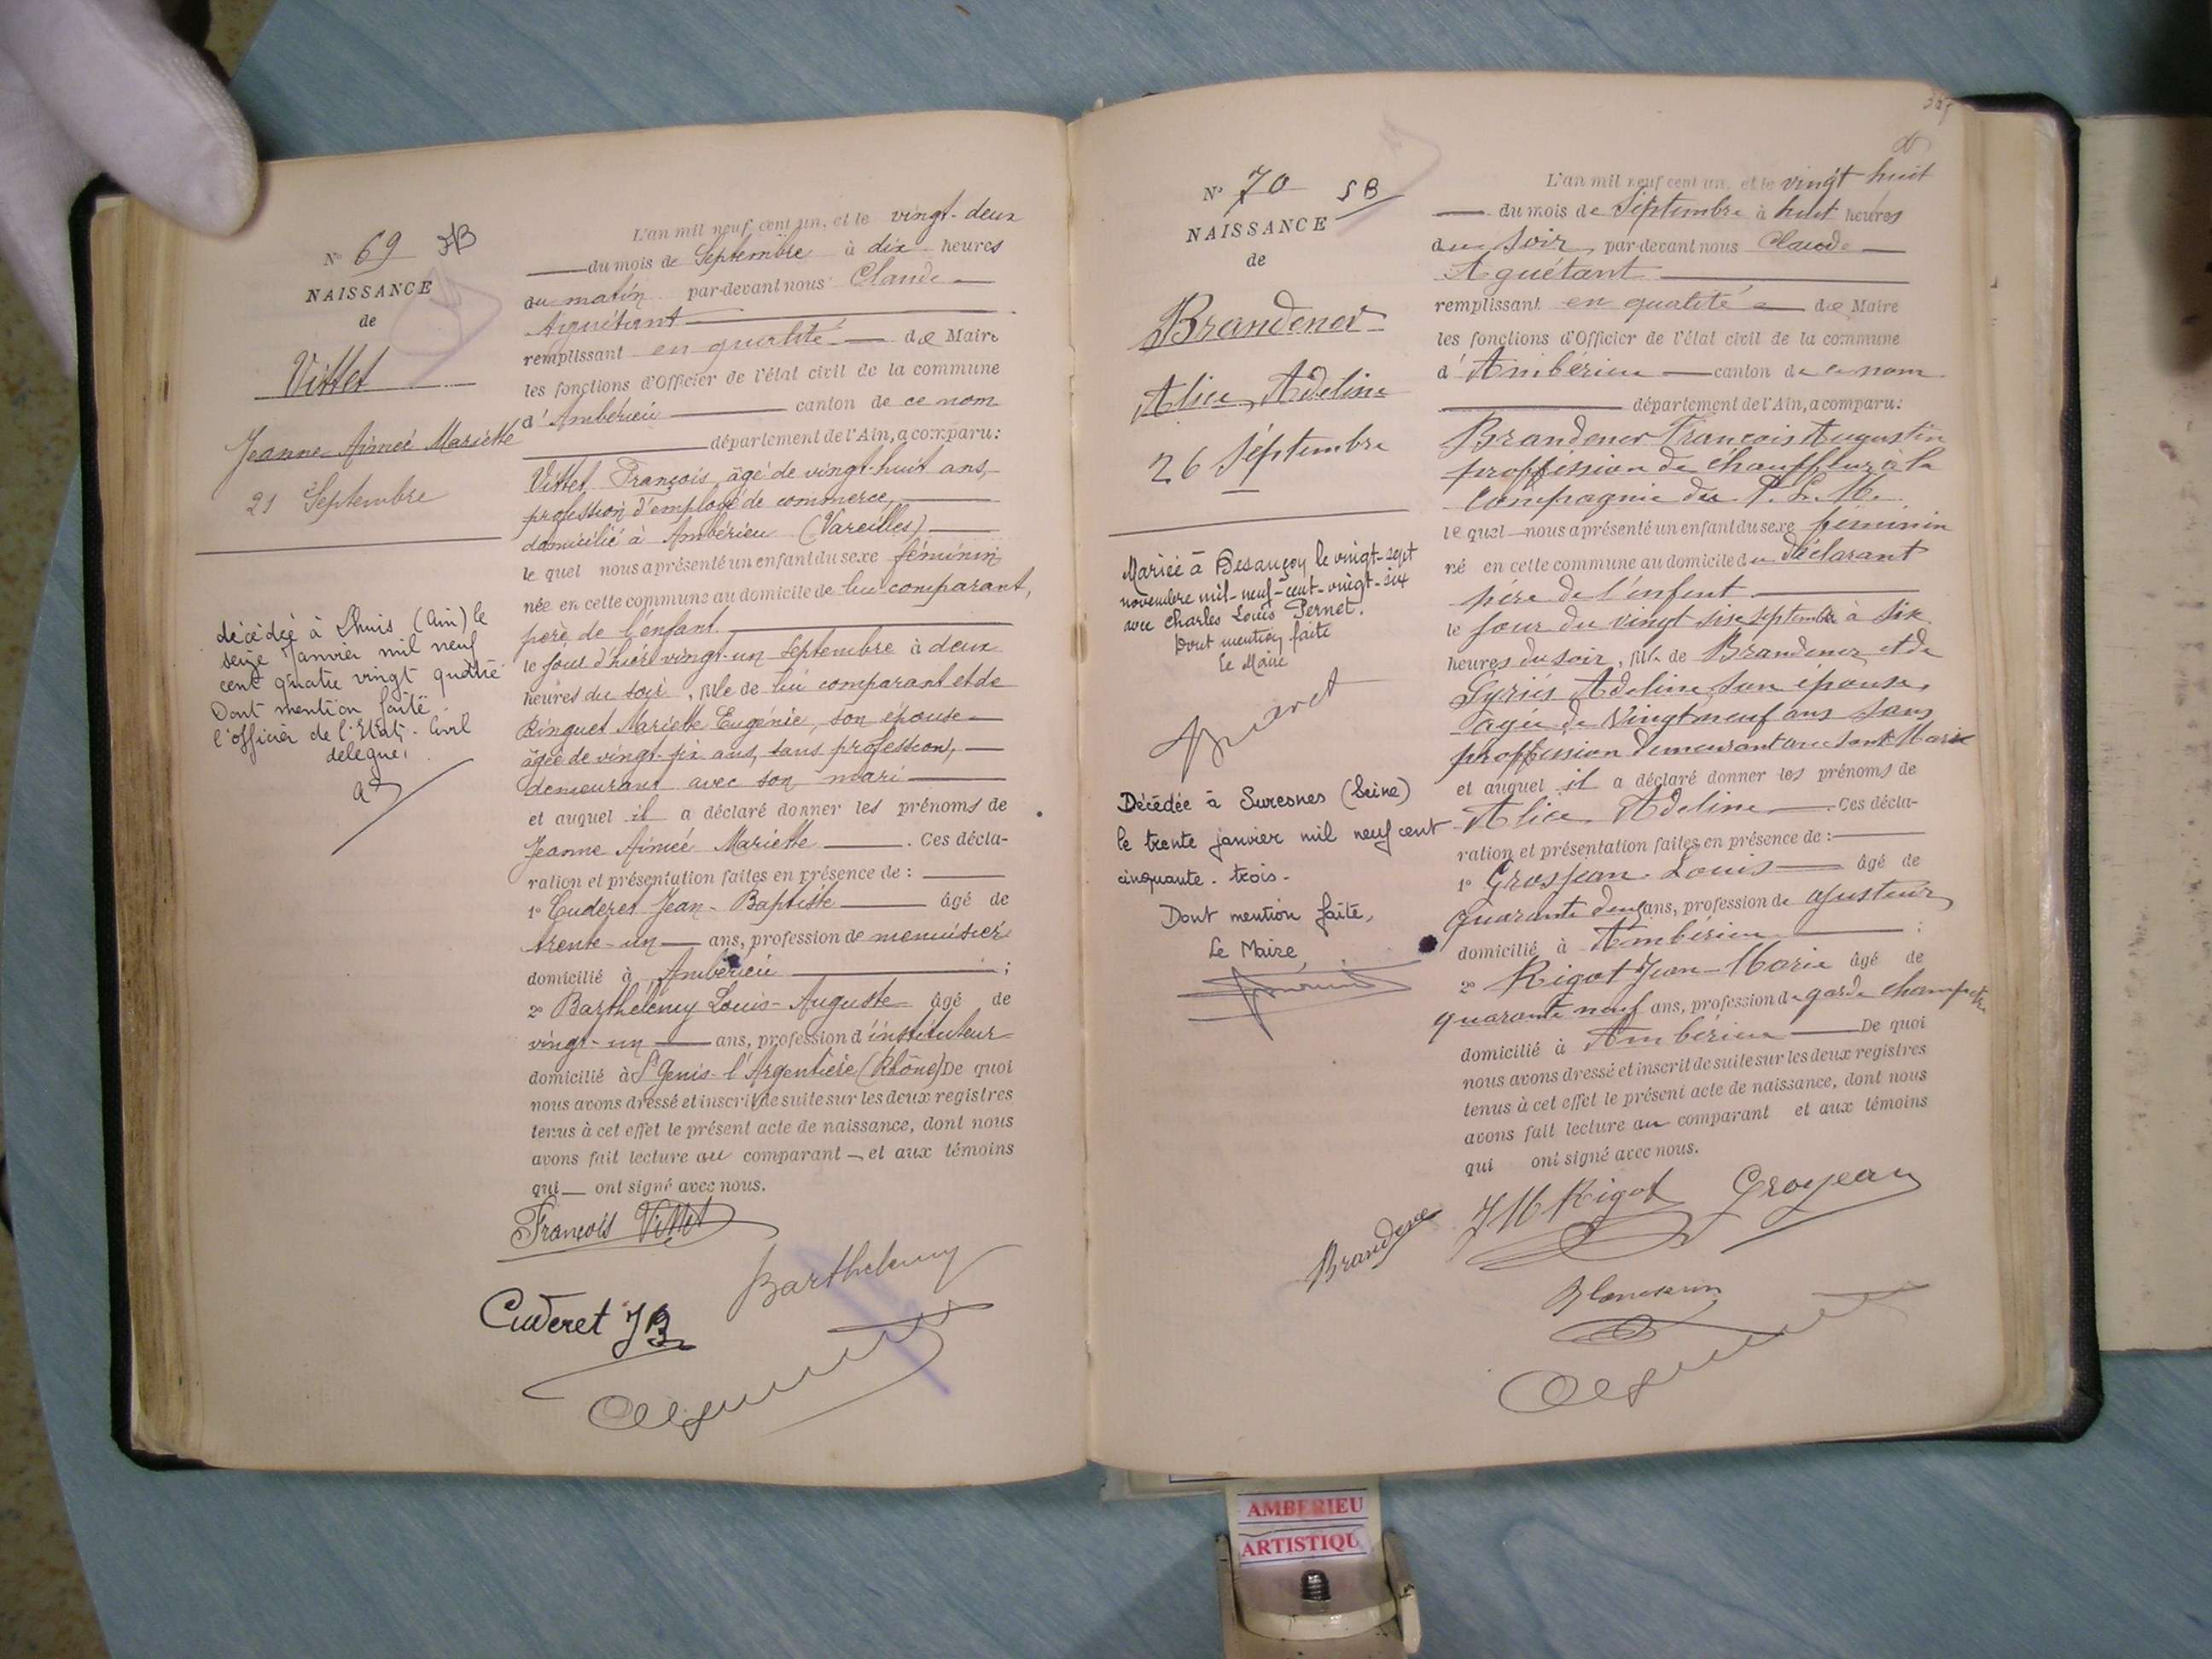 Nº 69 JB
NAISSANCE
de
Vittet
Jeanne Aimée Mariette
21 Septembre
décédée à Lhuis (Ain) le
seize Janvier mil neuf
cent quatre vingt quatre
Dont mention faite
l'officier de l'Etat-Civil
délégué,
L'an mil neuf cent un, et le vingt-deux
du mois de Septembre à dix heures
du matin par-devant nous Claude
Aguétant
remplissant en qualité de Maire
les fonctions d'Officier de l'état civil de la commune
d'Ambérieu canton de ce nom
département de l'Ain, a comparu :
Vittet François, âgé de vingt-huit ans,
profession d'employé de commerce,
domicilié à Ambérieu (Vareilles)
le quel nous a présenté un enfant du sexe féminin
née en cette commune au domicile de lui comparant,
père de l'enfant
le jour d'hier vingt-un septembre à deux
heures du soir, fille de lui comparant et de
Ringuet Mariette Eugénie, son épouse
âgée de vingt-six ans, sans profession,
demeurant avec son mari
et auquel il a déclaré donner les prénoms de
Jeanne Aimée Mariette . Ces décla-
ration et présentation faites en présence de :
1º Cuderet Jean-Baptiste âgé de
trente-un ans, profession de menuisier
domicilié à Ambérieu ;
2º Barthelemy Louis-Auguste âgé de
vingt-un ans, profession d'instituteur
domicilié à St Genis-l'Argentière (Rhône) De quoi
nous avons dressé et inscrit de suite sur les deux registres
tenus à cet effet le présent acte de naissance, dont nous
avons fait lecture au comparant et aux témoins
qui ont signé avec nous.
François Vittet
Barthelemy
Cuderet JB
Nº 70 SB
NAISSANCE
de
Brandener
Alice, Adeline
26 Septembre
Mariée à Besançon le vingt-sept
novembre mil-neuf-cent-vingt-six
avec Charles Louis Pernet.
Dont mention faite
Le Maire
Décédée à Suresnes (Seine)
le trente janvier mil neuf cent
cinquante-trois-
Dont mention faite,
Le Maire,
L'an mil neuf cent un, et le vingt huit
du mois de Septembre à huit heures
du soir, par-devant nous Claude
Aguétant
remplissant en qualité de Maire
les fonctions d'Officier de l'état civil de la commune
d'Ambérieu canton de ce nom
département de l'Ain, a comparu :
Brandener François Augustin
proffission de chauffeur à la
Compagnie du P. L. M.
le quel nous a présenté un enfant du sexe féminin
né en cette commune au domicile du déclarant
père de l'enfant
le jour du vingt six septembre à six
heures du soir, fille de Brandener et de
Adeline son épouse,
agée de vingt neuf ans sans
proffession demeurant avec sont Marie
et auquel il a déclaré donner les prénoms de
Alice Adeline . Ces décla-
ration et présentation faites en présence de :
1º Grosjean Louis âgé de
quarante deux ans, profession de ajusteur
domicilié à Ambérieu ;
2º Rigot Jean-Marie âgé de
quarante neuf ans, profession de garde champetre
domicilié à Ambérieu De quoi
nous avons dressé et inscrit de suite sur les deux registres
tenus à cet effet le présent acte de naissance, dont nous
avons fait lecture au comparant et aux témoins
qui ont signé avec nous.
Brandener JM Rigot Grosjean
AMBERIEU
ARTISTIQU